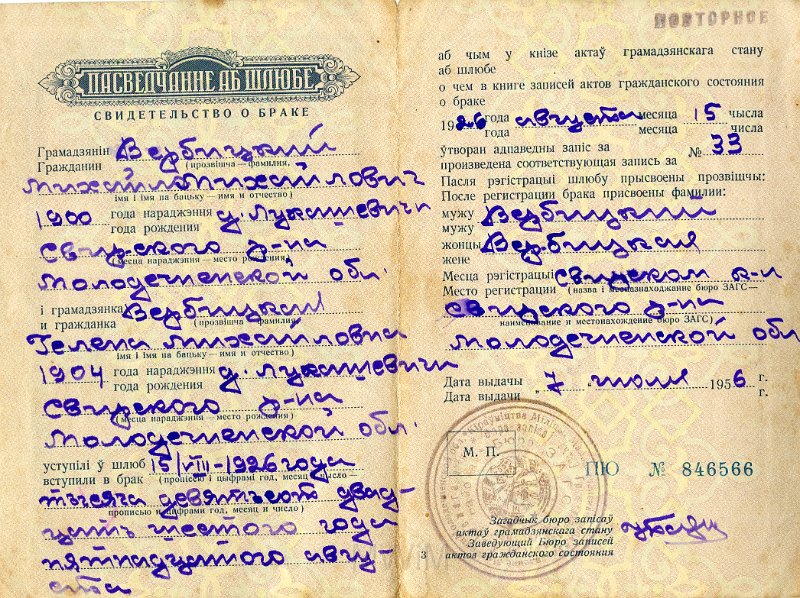 ПАСВЕДЧАННЕ АБ ШЛЮБЕ
СВИДЕТЕЛЬСТВО О БРАКЕ
Грамадзянін Вербицкий
Гражданин (прозвішча — фамилия,
Михаил Михайлович
імя і імя па бацьку — имя и отчество)
1900 года нараджэння д. Лукашевичи
года рождения
Свирского р-на
(месца нараджэння — место рождения)
Молодечненской обл.
і грамадзянка Вербицкая
и гражданка (прозвішча — фамилия
Гелена Михайловна
імя і імя па бацьку — имя и отчество)
1904 года нараджэння д. Лукашевичи
года рождения
Свирского р-на
(месца нараджэння — место рождения)
Молодечненской обл.
уступілі ў шлюб 15/VIII-1926 года
вступили в брак (пропісю і цыфрамі год, месяц і чысло —
тысяча девятьсот двад-
прописью и цифрами год, месяц и число)
цать шестого года
пятнадцатого авгу-
ста
ПОВТОРНОЕ
аб чым у кнізе актаў грамадзянскага стану
аб шлюбе
о чем в книге записей актов гражданского состояния
о браке
1926 года августа месяца 15 чысла
года месяца числа
ўтворан адпаведны запіс за № 33
произведена соответствующая запись за
Пасля рэгістрацыі шлюбу прысвоены прозвішчы:
После регистрации брака присвоены фамилии:
мужу Вербицкий
мужу
жонцы Вербицкая
жене
Месца рэгістрацыі Свирском
Место регистрации (назва і месцазнаходжанне бюро ЗАГС —
Свирского р-на
наименование и местонахождение бюро ЗАГС)
Молодечненской обл
Дата выдачы 7 июля 1956 г.
Дата выдачи г.
М. П.
ПЮ № 846566
Загадчык бюро запісаў
актаў грамадзянскага стану
Заведующий Бюро записей
актов гражданского состояния
3